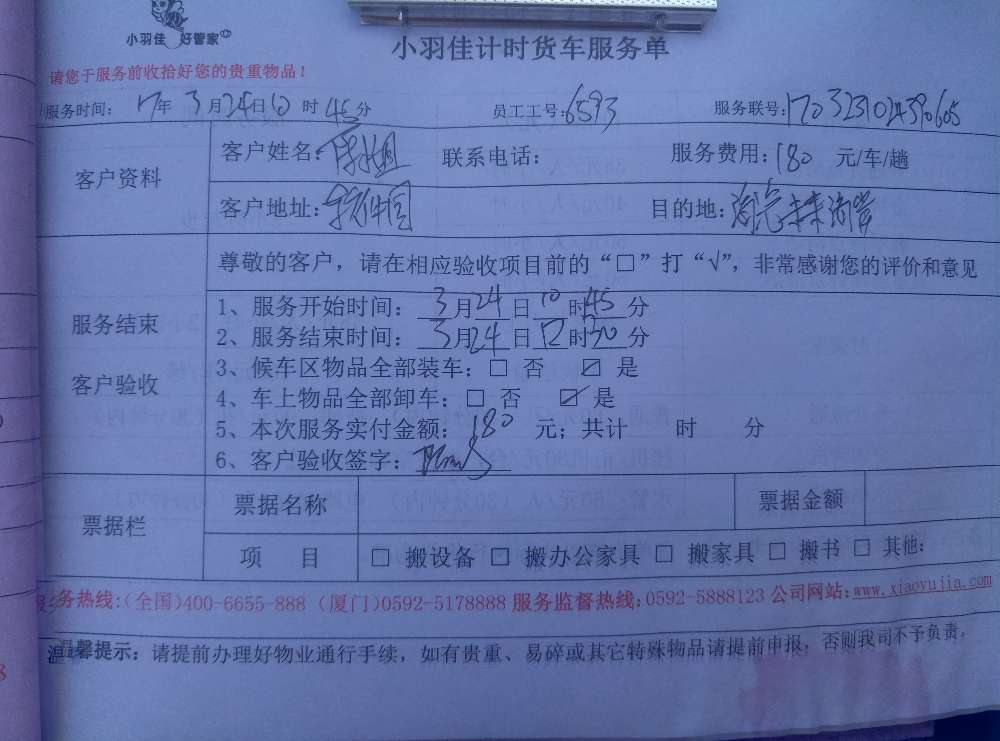 小羽佳 好管家
小羽佳计时货车服务单
请您于服务前收拾好您的贵重物品！
服务时间： 17年 3月24日10时45分 员工工号:6593 服务联号:1703231024390605
客户资料
客户姓名： 联系电话： 服务费用:180 元/车/趟
客户地址:软件园 目的地:
服务结束
客户验收
尊敬的客户，请在相应验收项目前的“□”打“√”，非常感谢您的评价和意见
1、服务开始时间：3月24日10时45分
2、服务结束时间：3月24日12时30分
3、候车区物品全部装车：□ 否 ☑ 是
4、车上物品全部卸车：□ 否 ☑ 是
5、本次服务实付金额：180 元；共计 时 分
6、客户验收签字：
票据栏
票据名称 票据金额
项 目 □ 搬设备 □ 搬办公家具 □ 搬家具 □ 搬书 □ 其他：
务热线:(全国)400-6655-888 (厦门)0592-5178888 服务监督热线:0592-5888123 公司网站:www.xiaoyujia.com
温馨提示：请提前办理好物业通行手续，如有贵重、易碎或其它特殊物品请提前申报，否则我司不予负责。